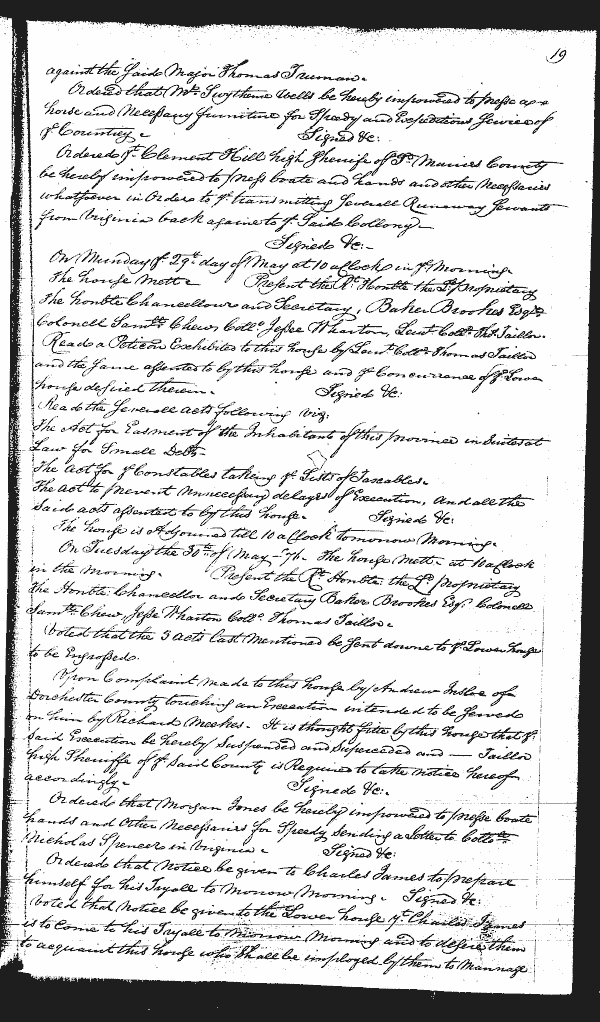 19
against the said Major Thomas Truman.
Ordered that Mr Swythine Wells be hereby impowred to presse a
horse and Necessary furniture for Speedy and Expeditious Service of
ye Countrey. Signed &c:
Ordered yt Clement Hill high Sherriffe of St Maries County
be hereby impowered to press boate and hands and other Necessaries
whatsoever in Order to ye transmitting severall Runaway Servants
from Virginia back againe to ye said Collony
Signed &c.
On Munday ye 29th day of May at 10 a Clock in ye Morning
The house mett. Present the Rt Honble the Ld Proprietary
The honble Chancellour and Secretary, Baker Brookes Esqr
Colonell Samll Chew, Collo Jesse Wharton, Leut Collo Tho: Taillor.
Reade a Peticon Exhibited to this house by Leut Collo Thomas Taillor
and the same assented to by this house and ye Concurrance of ye Lower
house desired therein. Signed &c:
Read the severall acts following viz:
The Act for Easment of the Inhabitants of this province in Suites at
Law for Small Debts
The act for ye Constables taking ye Lists of Taxables.
The act to prevent unnecessary delayes of Execution, and all the
said acts assented to by this house. Signed &c:
The house is Adjourned till 10 a Clock tomorrow Morning.
On Tuesday the 30th of May -76. The house mett. at 10 a Clock
in the Morning. Present the Rt Honble the Ld Proprietary
the Honble Chancellor and Secretary Baker Brookes Esqr Colonell
Samll Chew, Jesse Wharton Collo Thomas Taillor.
Voted that the 3 acts last Mentioned be sent downe to ye Lower house
to be Engrossed.
Upon Complaint made to this house by Andrew Inslee of
Dorchester County touching an Execution intended to be served
on him by Richard Meekes. It is thought fitt by this house that ye
said Execution be hereby Suspended and Superceded and — Taillor
high Sherriffe of ye said County is Required to take notice hereof
accordingly. Signed &c.
Ordered that Morgan Jones be hereby impowred to presse boate
hands and Other Necessaries for Speedy Sending a Letter to Collo
Nicholas Spencer in Virginia. Signed &c:
Ordered that notice be given to Charles James to prepare
himself for his Tryall to Morrow Morning. Signed &c:
Voted that notice be given to the Lower house yt Charles James
is to Come to his Tryall to Morrow Morning and to desire them
to acquaint this house who shall be imployed by them to Mannage